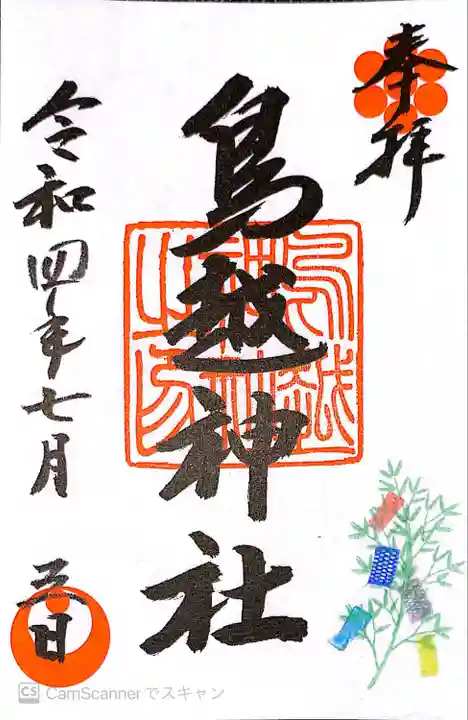 奉拝
鳥越神社
令和四年七月
五日
鳥越
神社
之印
CS CamScannerでスキャン